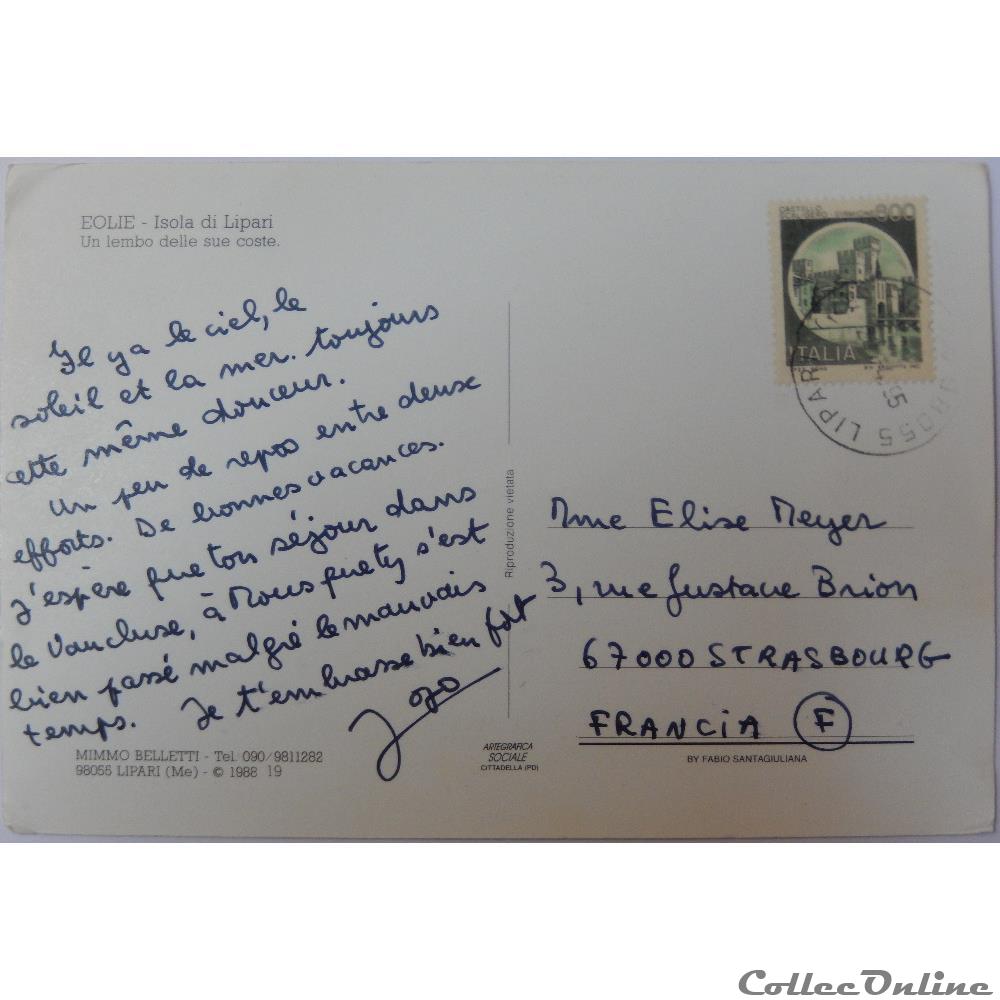 EOLIE - Isola di Lipari
Un lembo delle sue coste.
Il y a le ciel, le
soleil et la mer. toujours
cette même douceur.
Un peu de repos entre deux
efforts. De bonnes vacances.
J'espère que ton séjour dans
le Vaucluse, à Mous que ty s'est
bien passé malgré le mauvais
temps. Je t'embrasse bien fort
Jojo
MIMMO BELLETTI - Tel. 090/9811282
98055 LIPARI (Me) - © 1988 19
Riproduzione vietata
ARTEGRAFICA
SOCIALE
CITTADELLA (PD)
CASTELLO
800
ITALIA
98055 LIPARI
Mme Elise Meyer
3, rue Gustave Brion
67000 STRASBOURG
FRANCIA F
BY FABIO SANTAGIULIANA
CollecOnline